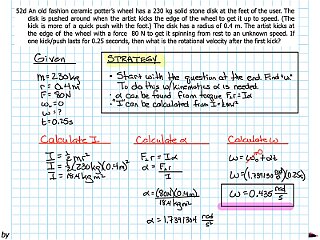 52d An old fashion ceramic potter's wheel has a 230 kg solid stone disk at the feet of the user. The
disk is pushed around when the artist kicks the edge of the wheel to get it up to speed. (The
kick is more of a quick push with the foot.) The disk has a radius of 0.4 m. The artist kicks at
the edge of the wheel with a force 80 N to get it spinning from rest to an unknown speed. If
one kick/push lasts for 0.25 seconds, then what is the rotational velocity after the first kick?
Given
m=230kg
r=0.4m
F=80N
ω₀=0
ω=?
t=0.25s
STRATEGY
• Start with the question at the end. Find "ω"
To do this w/ kinematics α is needed.
• α can be found from torque F⊥r=Iα
• "I" can be calculated from I=½mr²
Calculate I
I=½mr²
I=½(230kg)(0.4m)²
I=18.4kgm²
Calculate α
F⊥r=Iα
α=F⊥r/I
α=(80N)(0.4m)/18.4kgm²
α=1.7391304 rad/s²
Calculate ω
ω=ω₀+αt
ω=(1.739130 rad/s²)(0.25s)
ω=0.435 rad/s
by